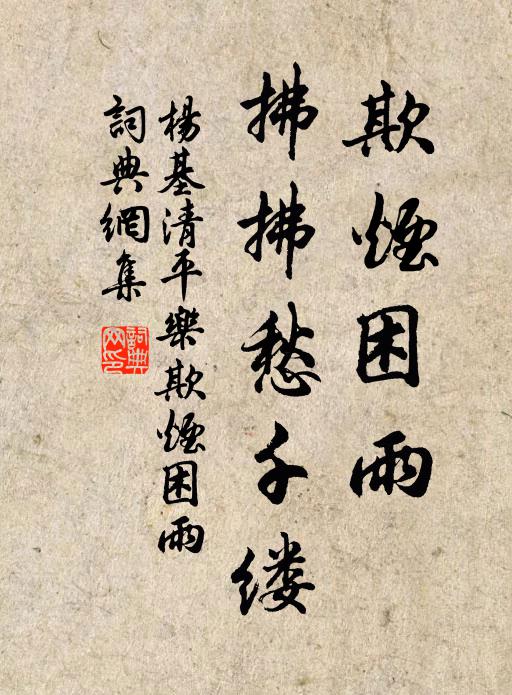 欺煙困雨
拂拂愁千缕
楊基清平樂欺煙困雨
詞典網集
詞典網印